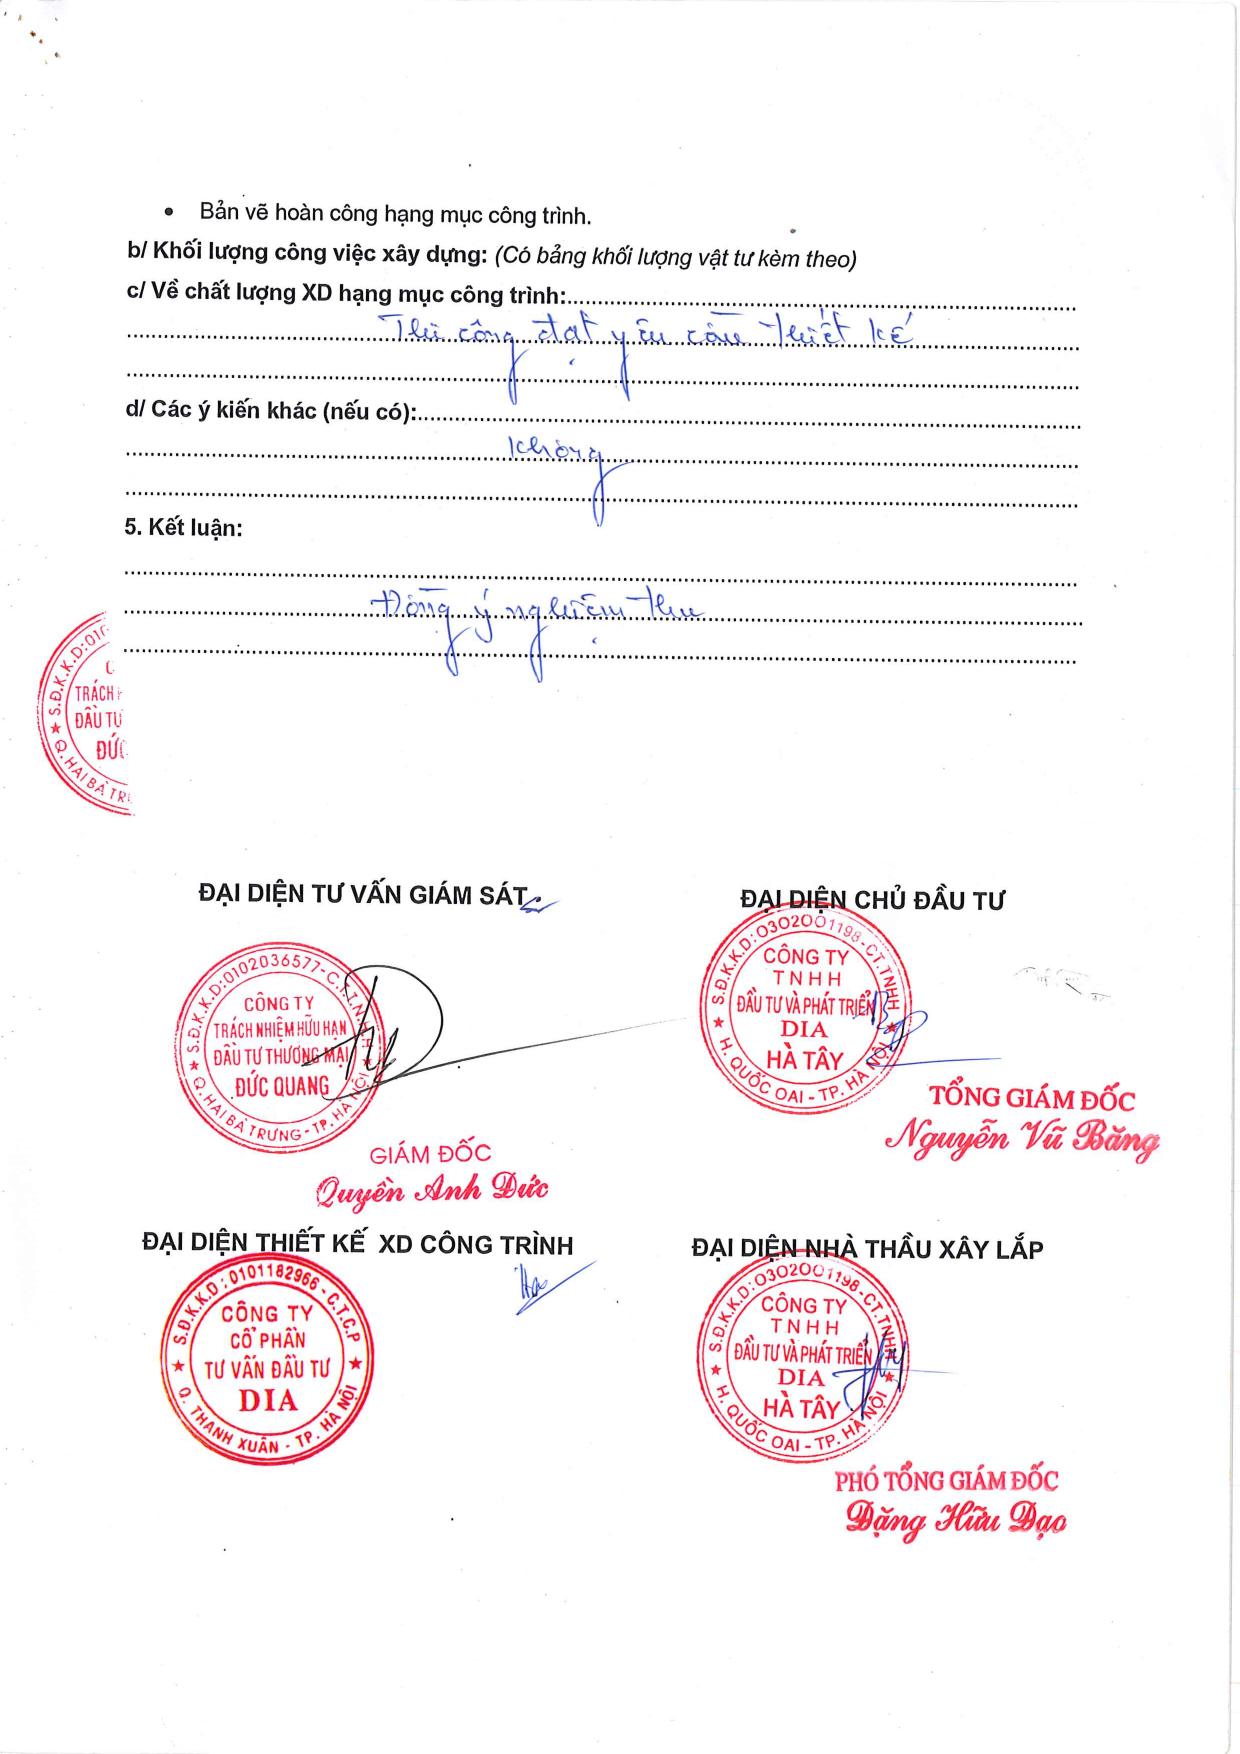 • Bản vẽ hoàn công hạng mục công trình.
b/ Khối lượng công việc xây dựng: (Có bảng khối lượng vật tư kèm theo)
c/ Về chất lượng XD hạng mục công trình:
Thi công đạt yêu cầu thiết kế
d/ Các ý kiến khác (nếu có):
Không
5. Kết luận:
Đồng ý nghiệm thu
S.Đ.K.K.D:010
TRÁCH
ĐẦU TƯ
ĐỨC
Q. HAI BÀ TRƯ
ĐẠI DIỆN TƯ VẤN GIÁM SÁT
S.Đ.K.K.D:0102036577-C.T.T.N.H.H
CÔNG TY
TRÁCH NHIỆM HỮU HẠN
ĐẦU TƯ THƯƠNG MẠI
ĐỨC QUANG
Q. HAI BÀ TRƯNG-TP. HÀ NỘI
GIÁM ĐỐC
Quyền Anh Đức
ĐẠI DIỆN CHỦ ĐẦU TƯ
S.Đ.K.K.D:0302001198-CT.TNHH
CÔNG TY
TNHH
ĐẦU TƯ VÀ PHÁT TRIỂN
DIA
HÀ TÂY
H. QUỐC OAI - TP. HÀ NỘI
TỔNG GIÁM ĐỐC
Nguyễn Vũ Băng
ĐẠI DIỆN THIẾT KẾ XD CÔNG TRÌNH
S.Đ.K.K.D: 0101182966 - C.T.C.P
CÔNG TY
CỔ PHẦN
TƯ VẤN ĐẦU TƯ
DIA
Q. THANH XUÂN - TP. HÀ NỘI
ĐẠI DIỆN NHÀ THẦU XÂY LẮP
S.Đ.K.K.D:0302001198-CT.TNHH
CÔNG TY
TNHH
ĐẦU TƯ VÀ PHÁT TRIỂN
DIA
HÀ TÂY
H. QUỐC OAI - TP. HÀ NỘI
PHÓ TỔNG GIÁM ĐỐC
Đặng Hữu Đạo